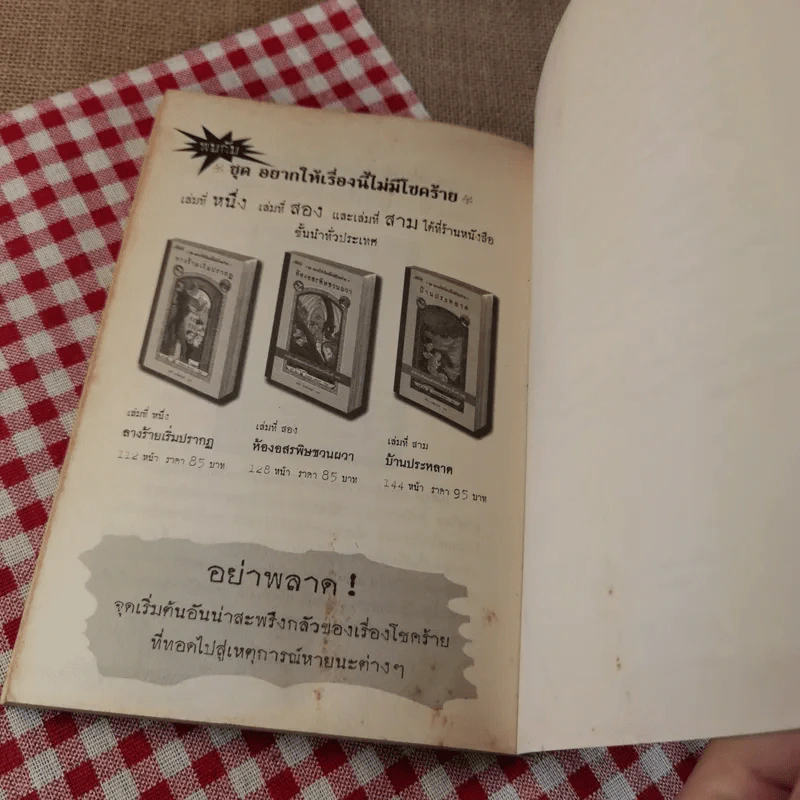 พบกับ
ชุด อยากให้เรื่องนี้ไม่มีโชคร้าย
เล่มที่ หนึ่ง เล่มที่ สอง และเล่มที่ สาม ได้ที่ร้านหนังสือ
ชั้นนำทั่วประเทศ
ลางร้ายเริ่มปรากฏ
ห้องอสรพิษชวนผวา
บ้านประหลาด
เล่มที่ หนึ่ง
ลางร้ายเริ่มปรากฏ
112 หน้า ราคา 85 บาท
เล่มที่ สอง
ห้องอสรพิษชวนผวา
128 หน้า ราคา 85 บาท
เล่มที่ สาม
บ้านประหลาด
144 หน้า ราคา 95 บาท
อย่าพลาด !
จุดเริ่มต้นอันน่าสะพรึงกลัวของเรื่องโชคร้าย
ที่ทอดไปสู่เหตุการณ์หายนะต่างๆ